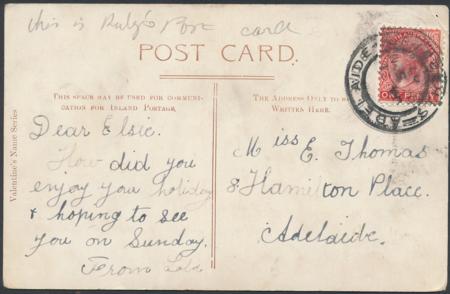 this is Ruby's Post card
POST CARD.
THIS SPACE MAY BE USED FOR COMMUNI-
CATION FOR INLAND POSTAGE.
THE ADDRESS ONLY TO BE
WRITTEN HERE.
Valentine's Name Series
Dear Elsie.
How did you
enjoy you holiday
& hoping to see
you on Sunday.
From
Miss E. Thomas
8 Hamilton Place.
Adelaide.
ADELAIDE